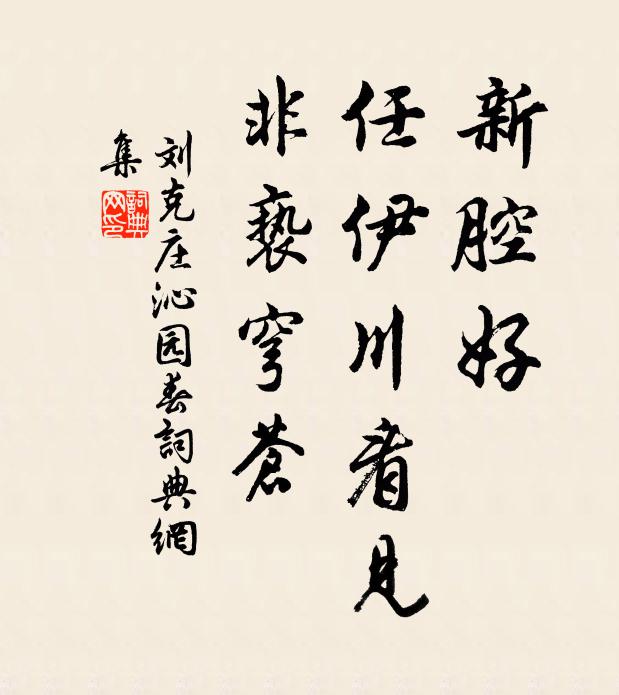 新腔好
任伊川看见
非亵穹苍
刘克庄沁园春詞典網
集
詞典网印